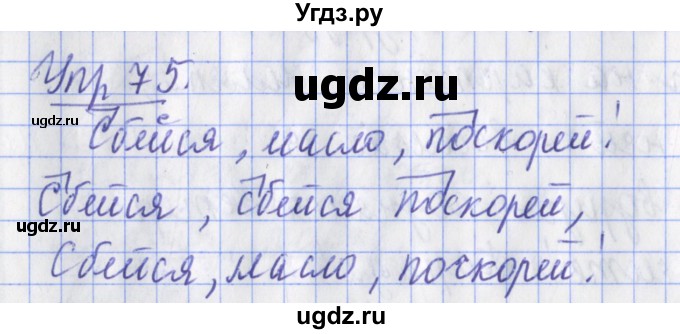 Угдз.ру
Упр 75.
ugdz.ru
ugdz.ru
Сбейся, масло, поскорей!
Сбейся, сбейся поскорей,
ugdz.ru
Сбейся, масло, поскорей!
ugdz.ru